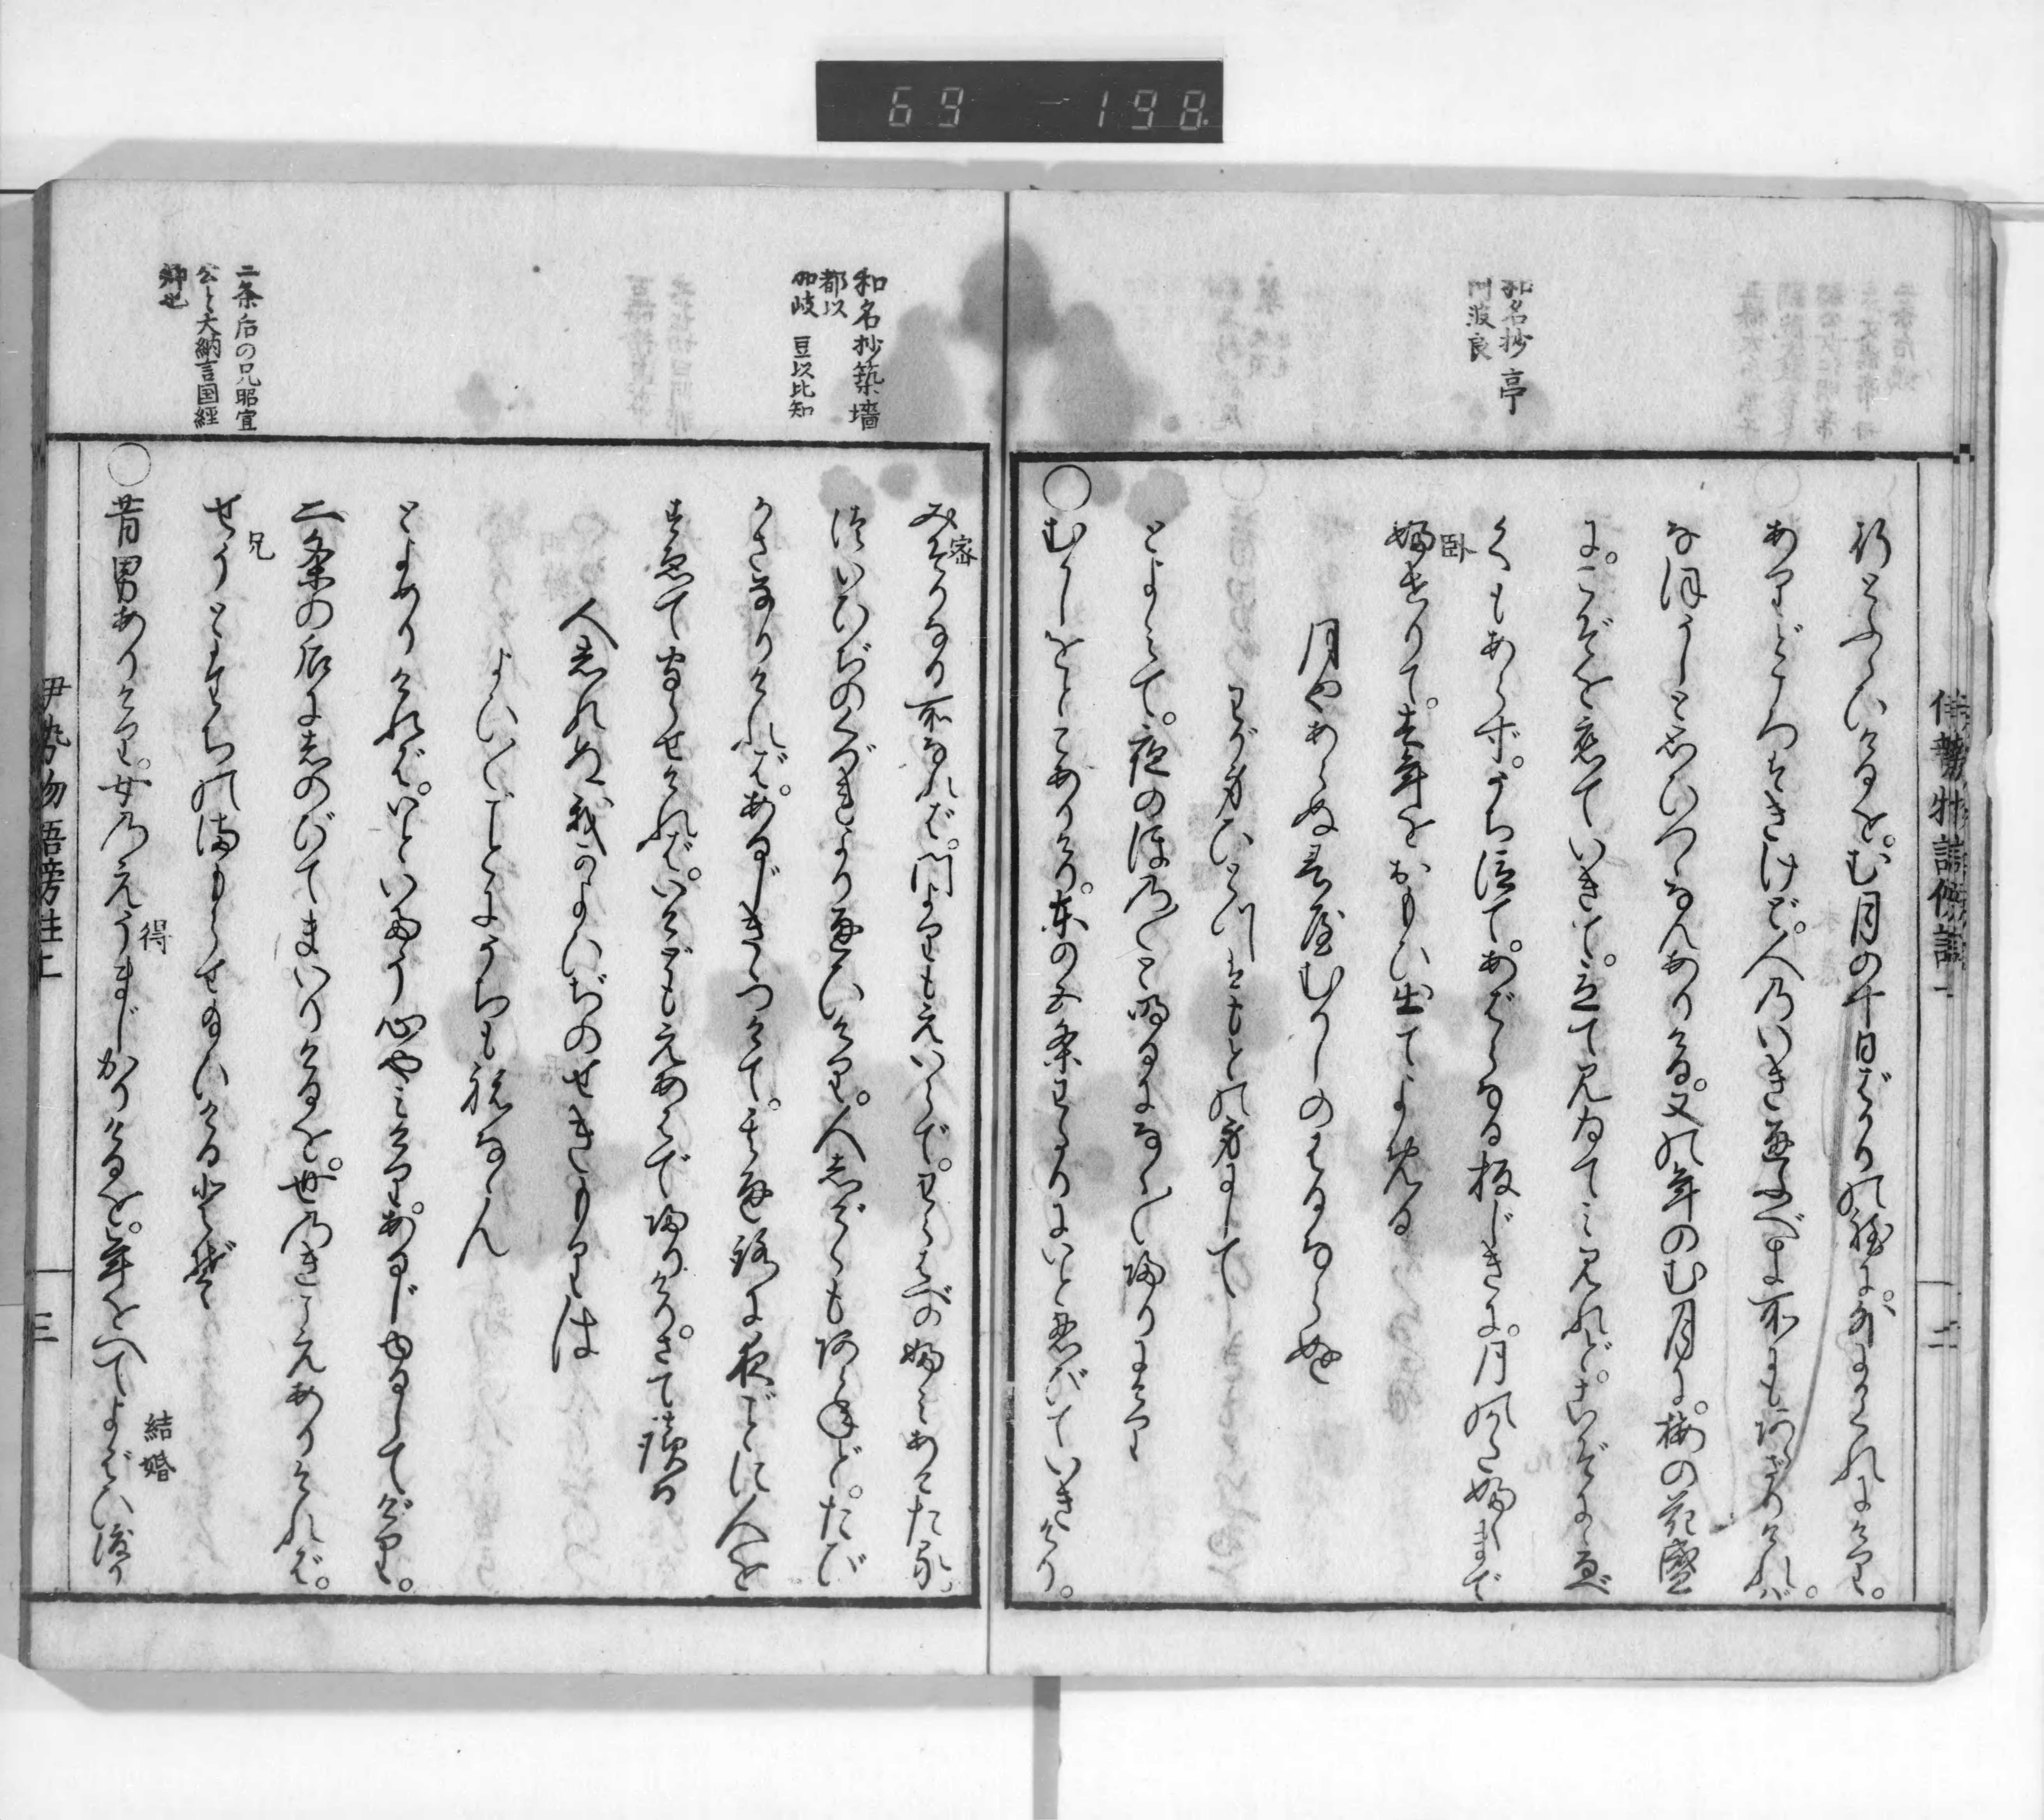 69 - 198
和名抄 亭
阿波良
行とふらひけるを。む月の十日ばかりの程に。外にかくれにけり。
ありどころはきけど。人のいき通ふべき所にも
なほうしと思ひつゝなんありける。又の年のむ月に。梅の花盛
に。こぞを恋ていきて。立て見ゐてみ見れど。こぞににるべ
くもあらず。うち泣て。あばらなる板じきに。月の
臥
ふせりて。去年をおもひ出てよめる
月やあらぬ春やむかしのはるならぬ
わが身ひとつはもとの身にして
とよみて。夜のほの〴〵と明るに なく〳〵帰りにけり
○むかしをとこありけり。東の五条わたりにいと忍びていきけり。
和名抄築墻
都以
加岐 豆以比知
密
みそかなる所なれば。門よりもえいらで。わらはべの踏みあけたる
ついひぢのくづれより通ひけり。人しげくもあらねど。たび
かさなりければ。あるじきゝつけて。其通路に夜ごとに人を
すゑて守らせければ。いけどもえあはで帰りけり。さて読る
人しれぬ我かよひぢのせきもりは
よひ〳〵ごとにうちも寝なゝん
とよめりければ。いといたう心やみけり。あるじゆるしてげり。
二条后の兄昭宣
公と大納言国経
卿也
二条の后にしのびてまいりけるを。世のきこえありければ。
兄
せうとたちの守らせ給ひけるとぞ
得
結婚
○昔男ありけり。女のえうまじかりけるを。年をへてよばひ渡り
伊勢物語傍註上
三